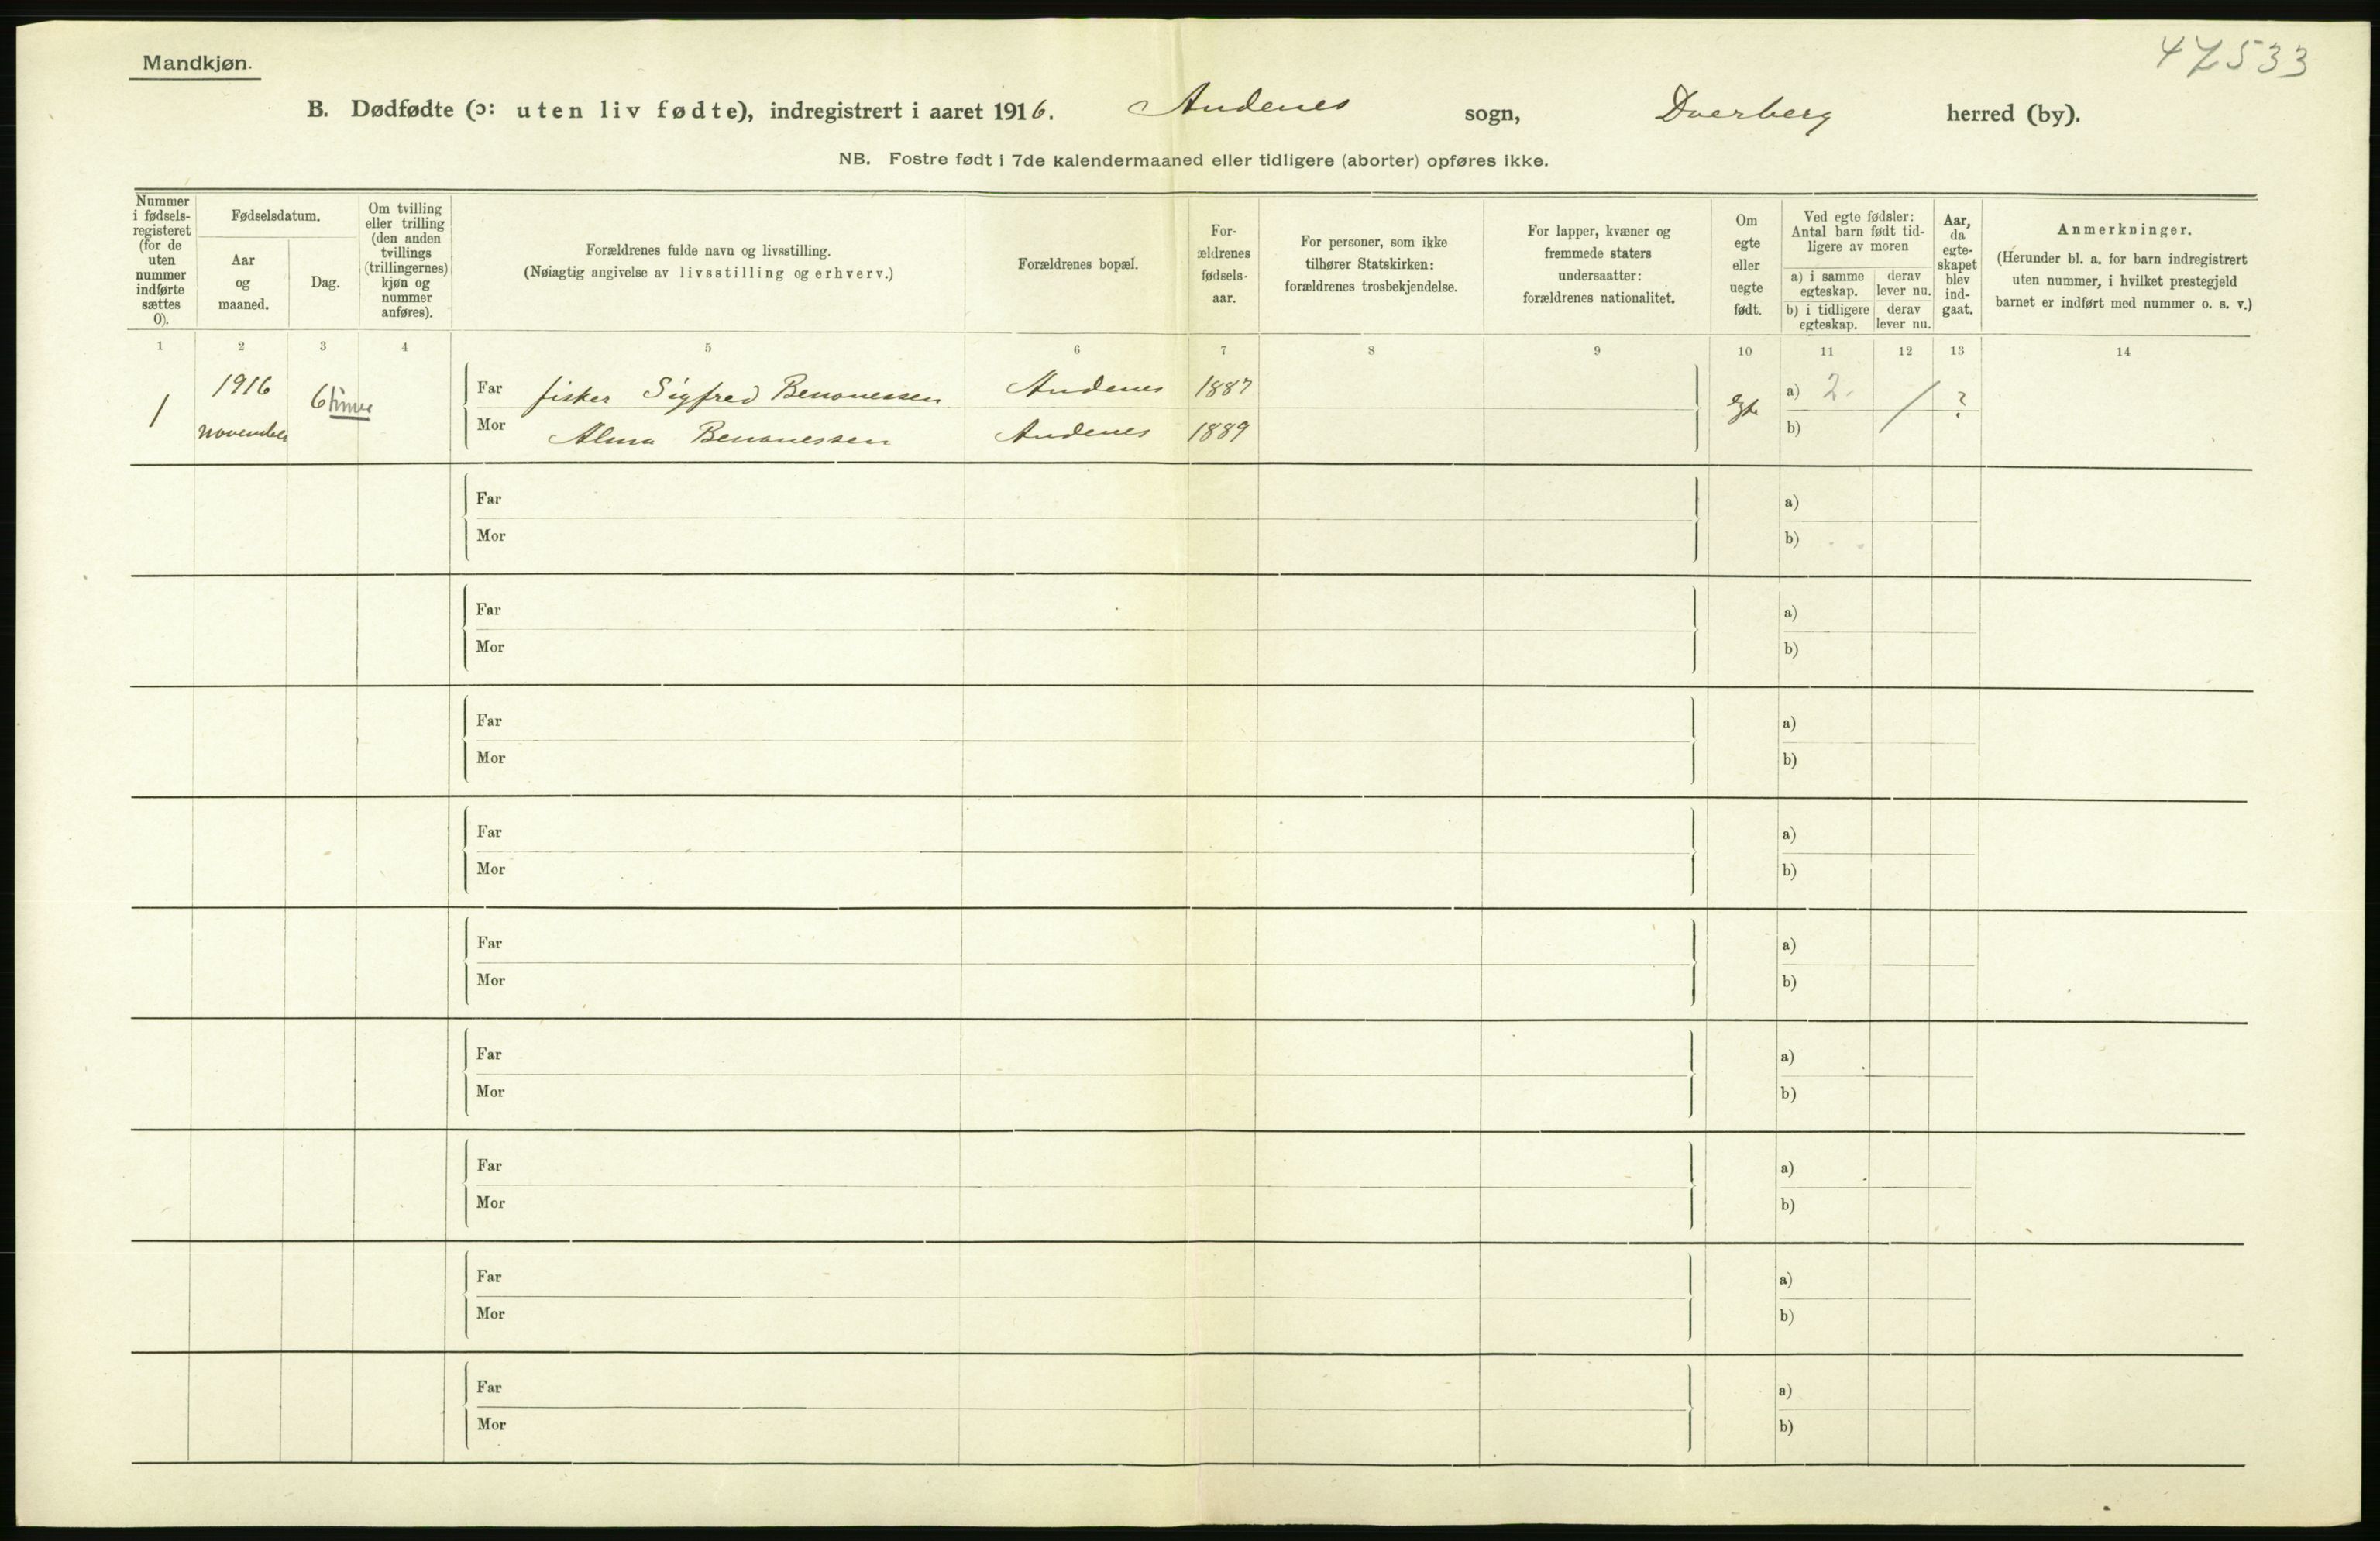 47533
Mandkjøn.
B. Dødfødte (ɔ: uten liv fødte), indregistrert i aaret 1916. Andenes sogn, Dverberg herred (by).
NB. Fostre født i 7de kalendermaaned eller tidligere (aborter) opføres ikke.
Nummer
i fødsels-
registeret
(for de
uten
nummer
indførte
sættes
0).
Fødselsdatum.
Aar
og
maaned.
Dag.
Om tvilling
eller trilling
(den anden
tvillings
(trillingernes)
kjøn og
nummer
anføres).
Forældrenes fulde navn og livsstilling.
(Nøiagtig angivelse av livsstilling og erhverv.)
Forældrenes bopæl.
For-
ældrenes
fødsels-
aar.
For personer, som ikke
tilhører Statskirken:
forældrenes trosbekjendelse.
For lapper, kvæner og
fremmede staters
undersaatter:
forældrenes nationalitet.
Om
egte
eller
uegte
født.
Ved egte fødsler:
Antal barn født tid-
ligere av moren
a) i samme
egteskap.
derav
lever nu.
b) i tidligere
egteskap.
derav
lever nu.
Aar,
da
egte-
skapet
blev
ind-
gaat.
Anmerkninger.
(Herunder bl. a. for barn indregistrert
uten nummer, i hvilket prestegjeld
barnet er indført med nummer o. s. v.)
1 2 3 4 5 6 7 8 9 10 11 12 13 14
1 1916 6 timer Far fisker Sigfred Benonessen Andenes 1887 egte a) 2. / ?
november Mor Alma Benonessen Andenes 1889 b)
Far a)
Mor b)
Far a)
Mor b)
Far a)
Mor b)
Far a)
Mor b)
Far a)
Mor b)
Far a)
Mor b)
Far a)
Mor b)
Far a)
Mor b)
Far a)
Mor b)